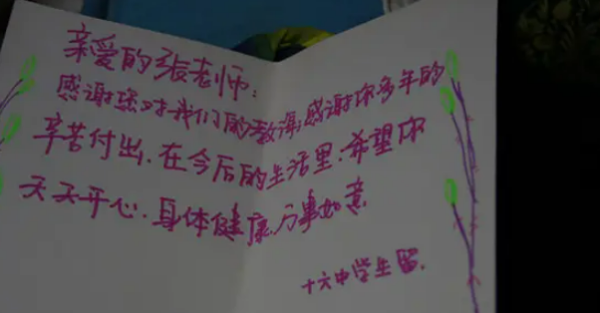 亲爱的张老师：
感谢您对我们的教诲，感谢你多年的
辛苦付出.在今后的生活里.希望你
天天开心.身体健康.万事如意
十六中学生留.